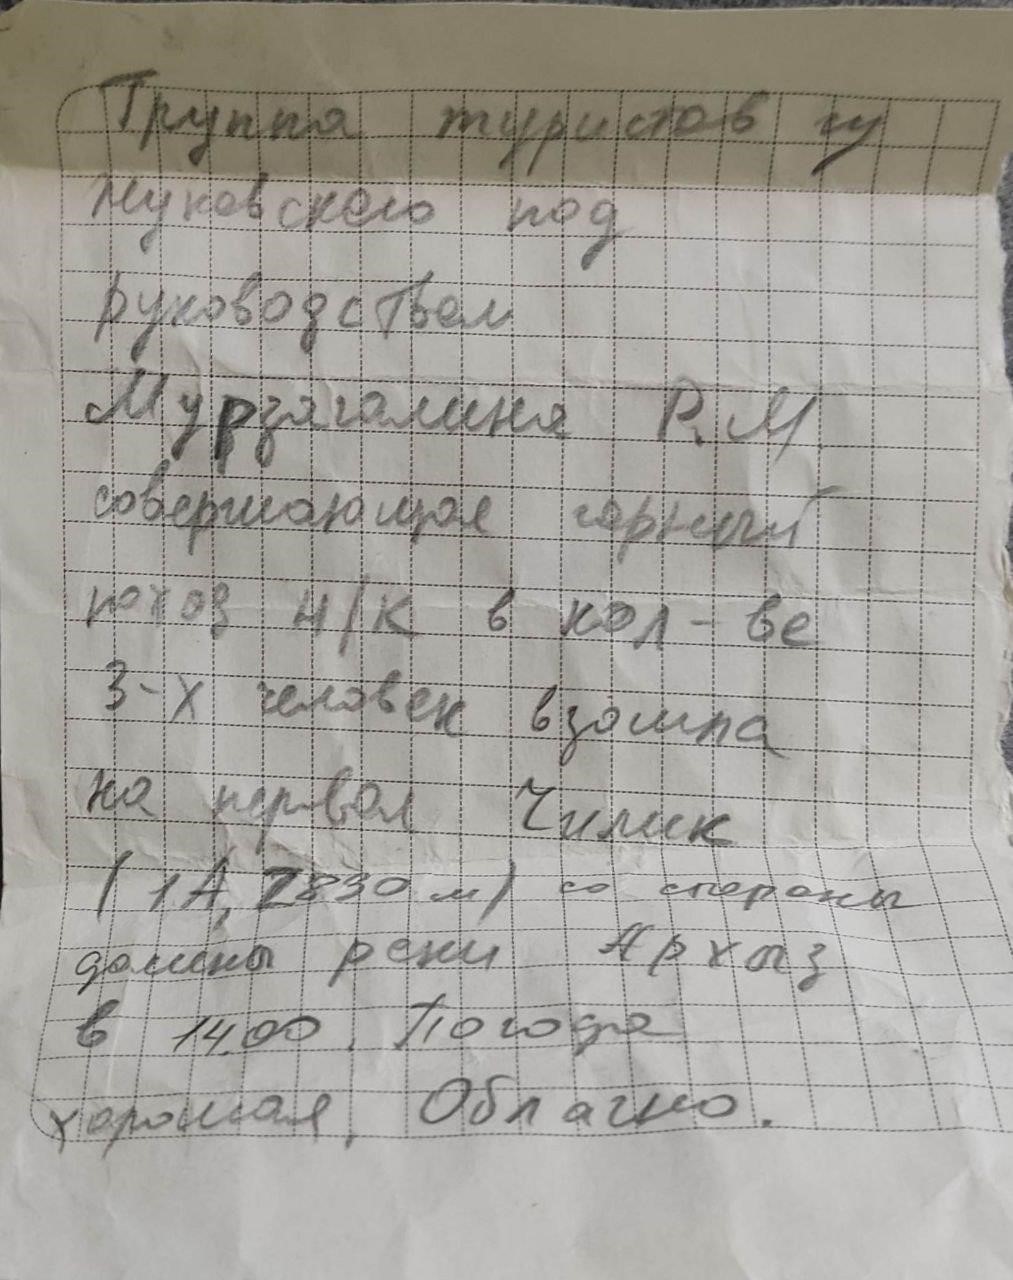 Группа туристов из
Жуковского под
руководством
Мурзагалина Р.М.
совершающая горный
поход н/к в кол-ве
3-х человек взошла
на перевал Чилик
(1А, 2830 м) со стороны
долины реки Архыз
в 14.00. Погода
хорошая. Облачно.